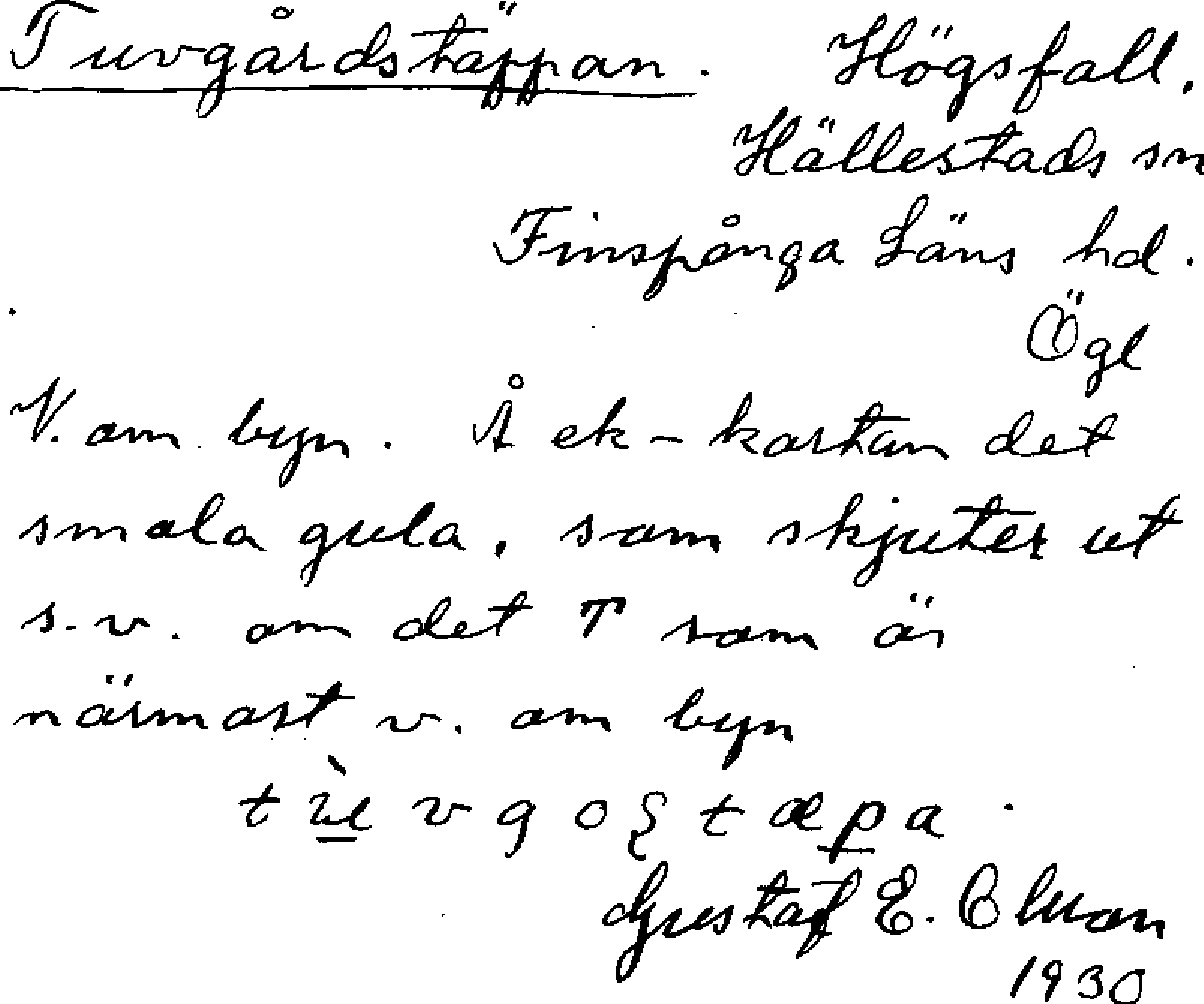 Tuvgårdstäppan. Högsfall,
Hällestads sn
Finspånga Läns hd.
Ögl
V. om byn. Å ek-kartan det
smala gula, som skjuter ut
s.v. om det T som är
närmast v. om byn
Gustaf E.
1930